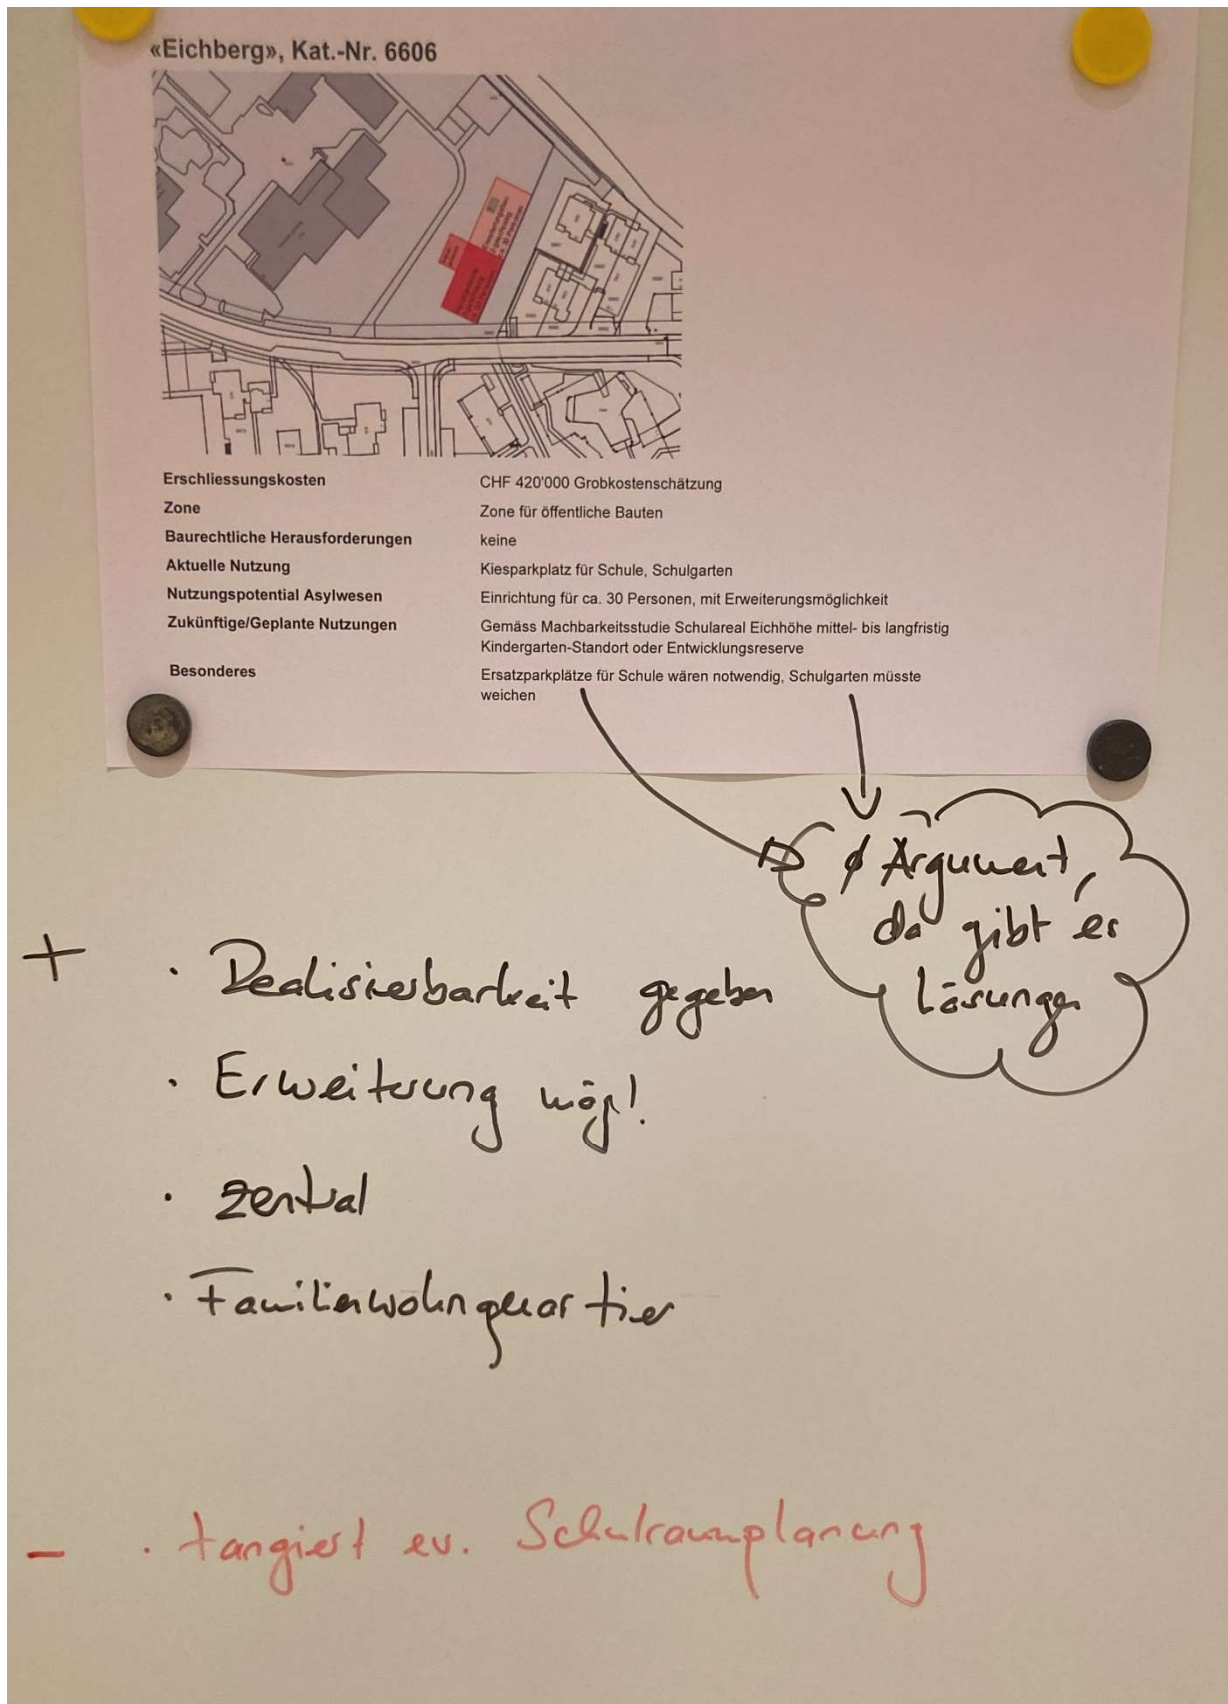 «Eichberg», Kat.-Nr. 6606
Erschliessungskosten CHF 420'000 Grobkostenschätzung
Zone Zone für öffentliche Bauten
Baurechtliche Herausforderungen keine
Aktuelle Nutzung Kiesparkplatz für Schule, Schulgarten
Nutzungspotential Asylwesen Einrichtung für ca. 30 Personen, mit Erweiterungsmöglichkeit
Zukünftige/Geplante Nutzungen Gemäss Machbarkeitsstudie Schulareal Eichhöhe mittel- bis langfristig
Kindergarten-Standort oder Entwicklungsreserve
Besonderes Ersatzparkplätze für Schule wären notwendig, Schulgarten müsste
weichen
∅ Argument,
da gibt es
Lösungen
+ · Realisierbarkeit gegeben
· Erweiterung mögl.
· zentral
· Familienwohnquartier
- · tangiert ev. Schulraumplanung